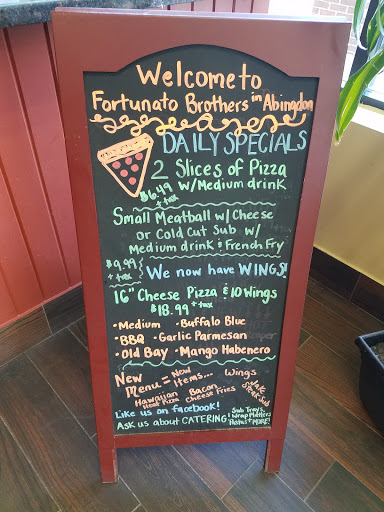 Welcome to
Fortunato Brothers in Abingdon
DAILY SPECIALS
2 Slices of Pizza
$6.49 w/Medium drink
+ tax
Small Meatball w/ Cheese
or Cold Cut Sub w/
Medium drink & French Fry
$9.99
+ tax
We now have WINGS!
16" Cheese Pizza & 10 Wings
$18.99 + tax
•Medium •Buffalo Blue
•BBQ •Garlic Parmesan
•Old Bay •Mango Habenero
New Menu = New Items... Wings
Hawaiian Meat Pizza
Bacon Cheese Fries
Steak Sub
Like us on facebook!
Ask us about CATERING
Sub Trays,
Wrap Platters
Pastas + MORE!